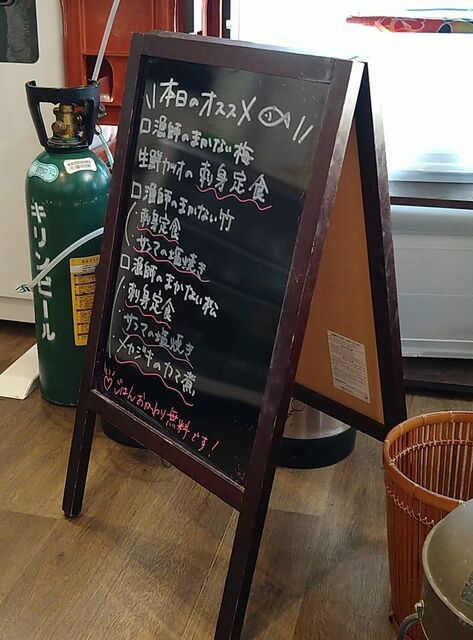 本日のオススメ
口漁師のまかない梅
生鮮カツオの刺身定食
口漁師のまかない竹
・刺身定食
・サンマの塩焼き
口漁師のまかない松
・刺身定食
・サンマの塩焼き
・メカジキのカマ煮
♡ごはんおかわり無料です!
キリンビール